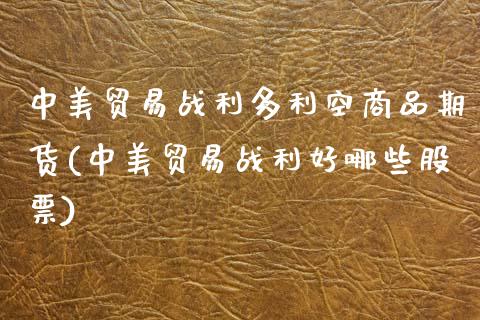 中美贸易战利多利空商品期
货(中美贸易战利好哪些股
票)